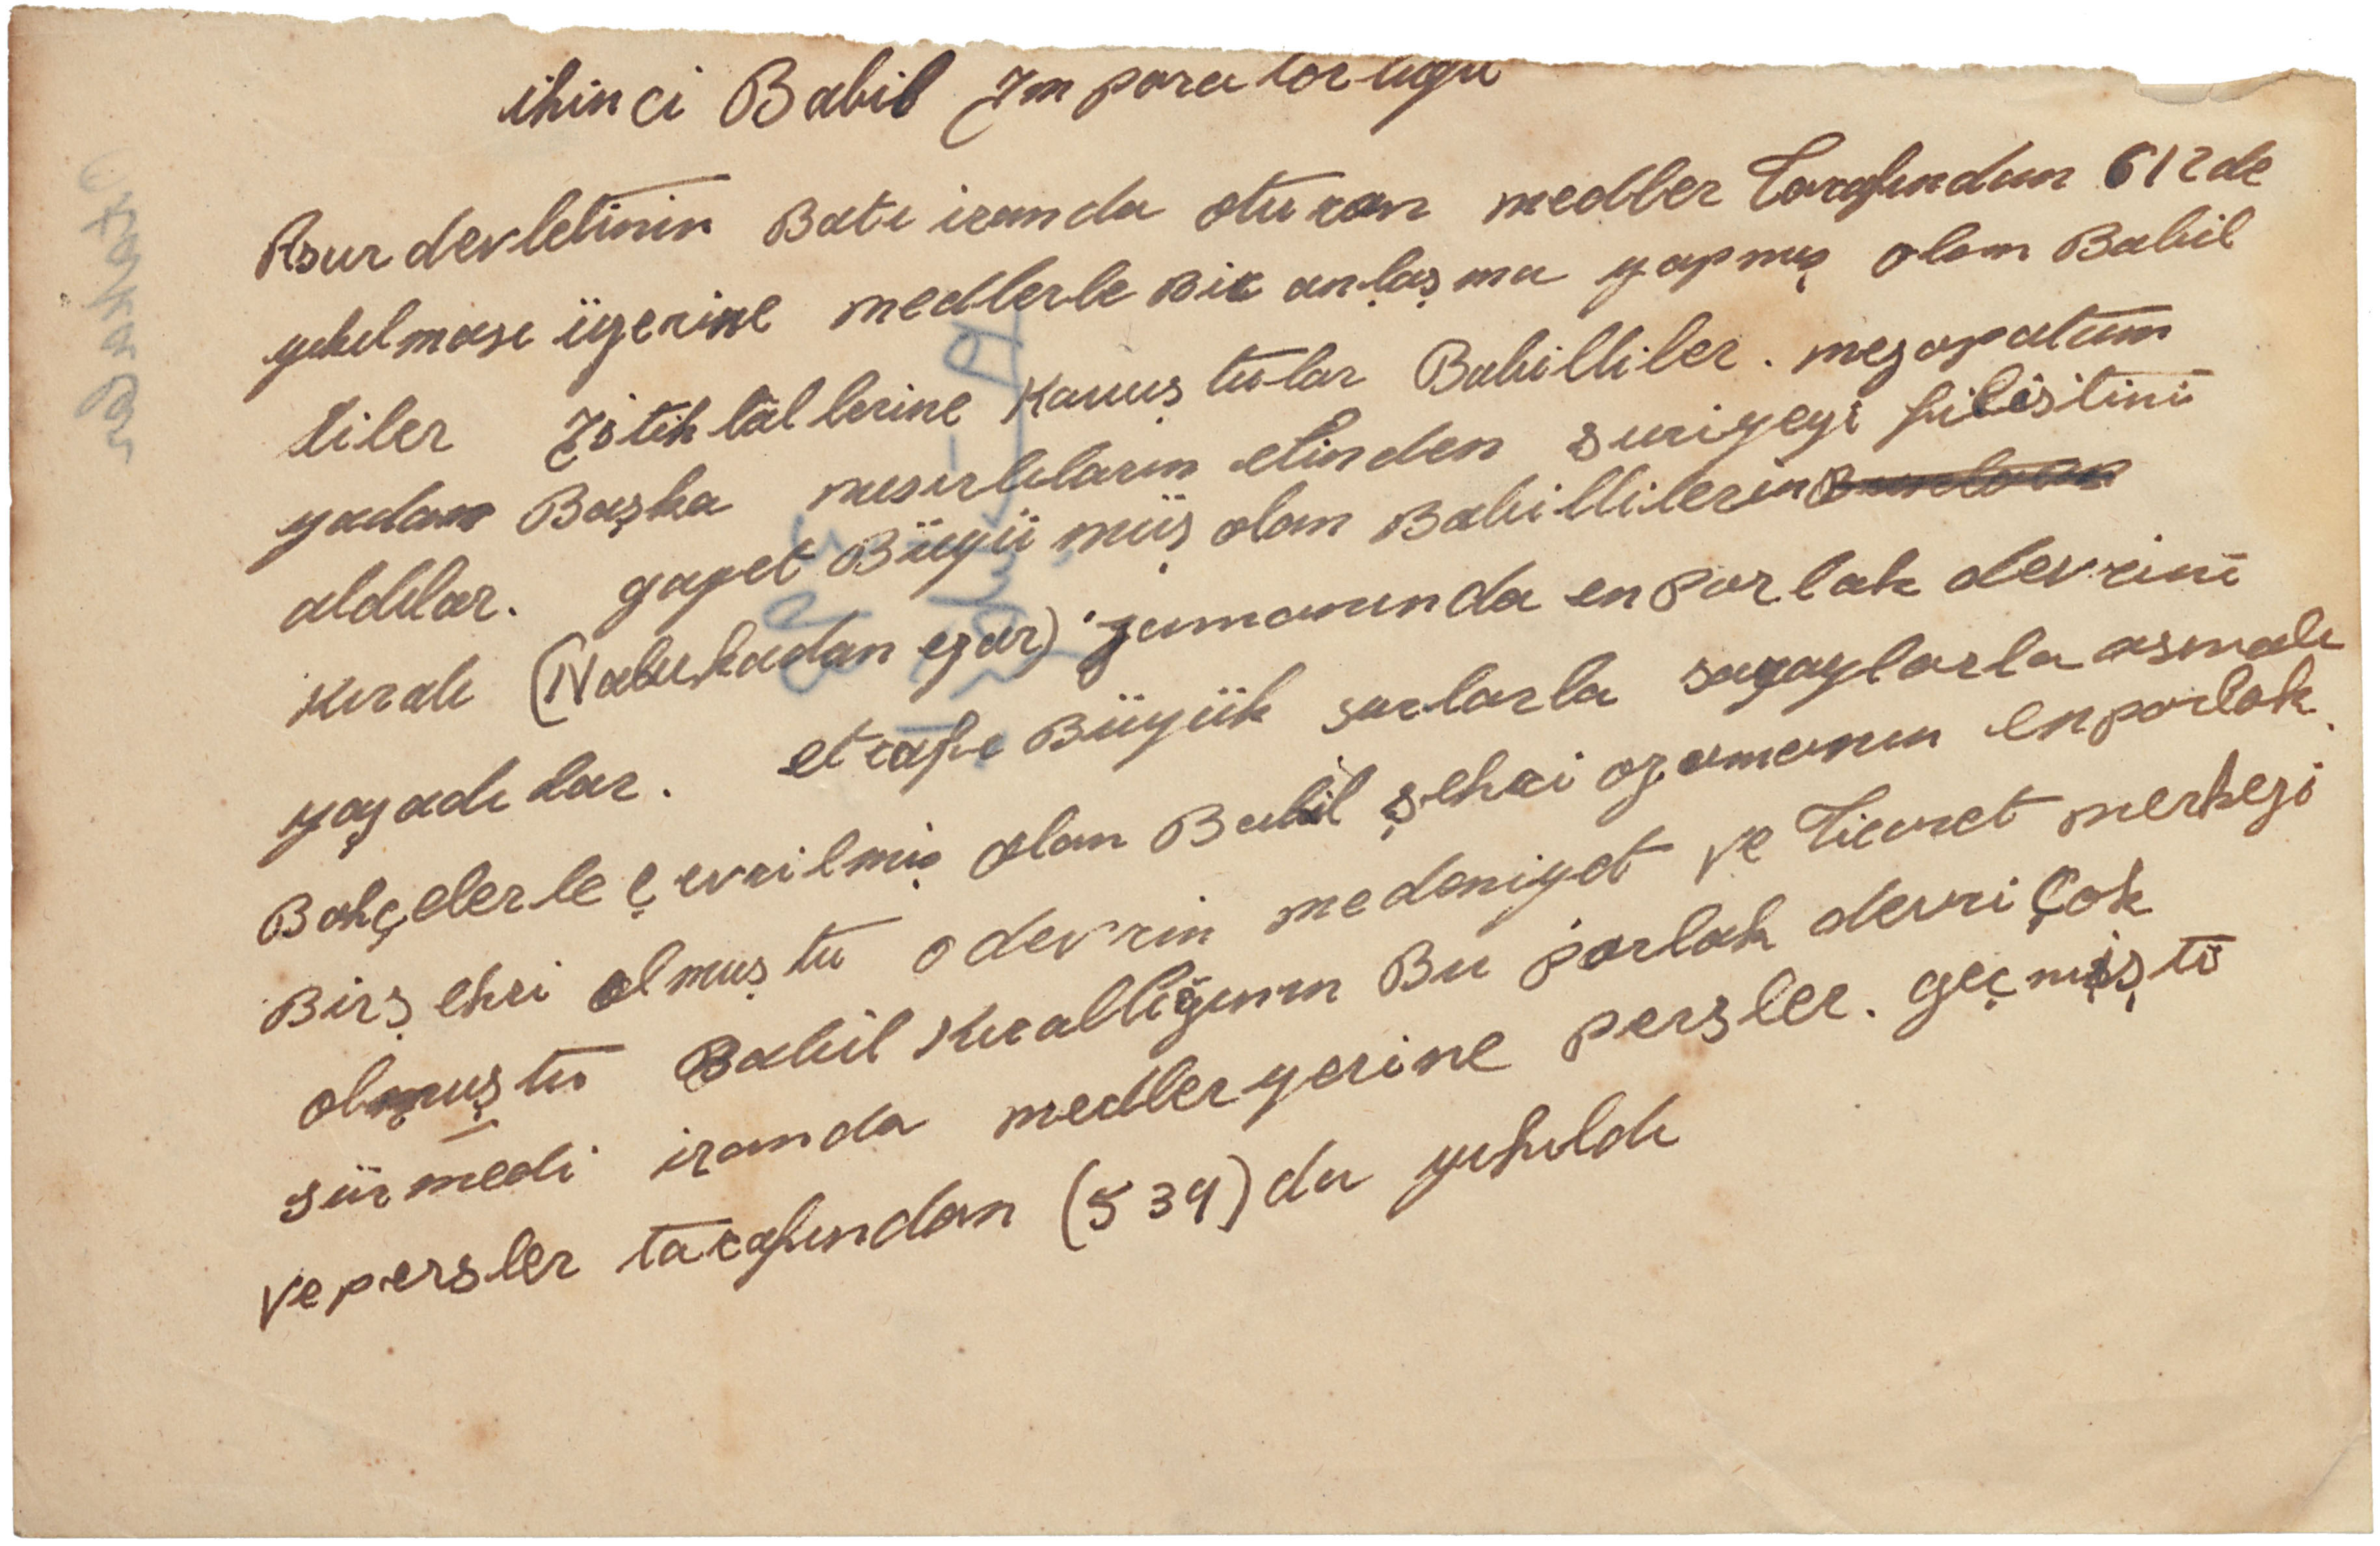 ikinci Babil İmparatorluğu
Asur devletinin Batı iranda oturan medler tarafından 612 de
yıkılması üzerine medlerle Bir anlaşma yapmış olan Babil
liler İstiklâllerine Kavuştular Babilliler. mezopotam
yadan Başka mısırlıların elinden suriyeyi filistini
aldılar. gayet Büyümüş olan Babillilerin
Kıralı (Nabukadan ezar) zamanında en parlak devrini
yaşadılar. etrafı Büyük surlarla saraylarla asmalı
Bahçelerle çevrilmiş olan Babil şehri o zamanın en parlak
Bir şehri olmuştu o devrin medeniyet ve Ticaret merkezi
olmuştu Babil Kırallığının Bu parlak devri Çok
sürmedi iranda medler yerine persler. geçmişti
ve persler tarafından (539) da yıkıldı